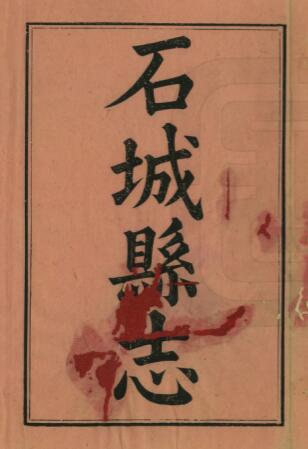 石城縣志